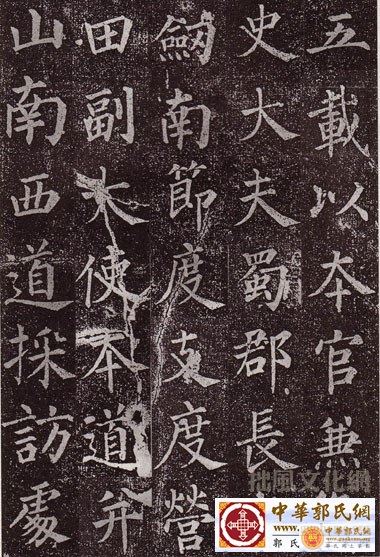 五載以本官兼
史大夫蜀郡長
劒南節度支度營
田副大使本道弁
山南西道採訪處
拙風文化網
中華郭氏網
www.
郭氏